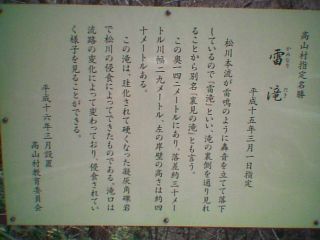 高山村指定名勝
雷滝
かみなり
だき
平成十五年三月一日指定
松川本流が雷鳴のように轟音を立てて落下
しているので「雷滝」といい、滝の裏側を通り見れ
ることから別名「裏見の滝」とも言う。
この奥一四〇メートルにあり、落差約三十メー
トル川幅二九メートル、左の岸壁の高さは約四
十メートルある。
この滝は、珪化されて硬くなった凝灰角礫岩
で松川の侵食によってできたものである。滝口は
流路の変化によって変わっており、侵食されてい
く様子を見ることができる。
平成十六年三月設置
高山村教育委員会